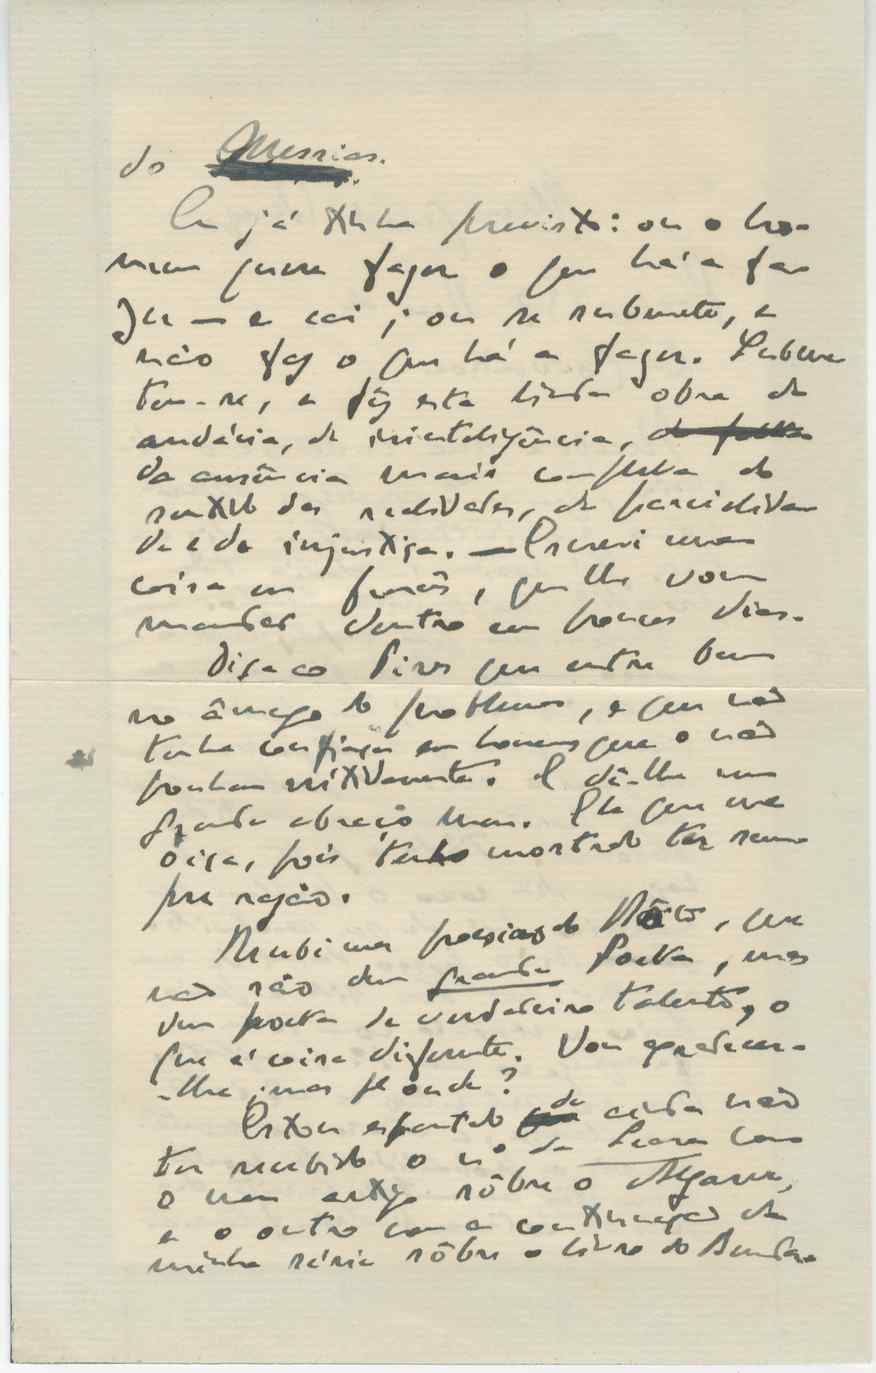 do Messias.
Eu já tinha previsto: ou o ho-
mem quere fazer o que há a fa-
zer — e cai; ou se submete, e
não faz o que há a fazer. Subme-
teu-se, e fêz esta linda obra de
audácia, de inintelixência,
da ausência mais completa do
sentido das realidades, de parcialida-
de e de injustiça. — Escrevi uma
coisa em francês, que lhe vou
mandar dentro em poucos dias.
Diga ao Pires que entre bem
no âmago do problema, e que não
tenha confiança em homens que o não
ponham nitidamente. E dê-lhe um
grande abraço meu. Ele que me
oiça, pois tenho mostrado ter sem-
pre razão.
Recebi umas poesias do
não são dum grande Poeta, mas
dum poeta de verdadeiro talento, o
que é coisa diferente. Vou agradecer-
-lhe; mas p.ª onde?
Estou espantado de ainda não
ter recebido o n.º da Seara com
o meu artigo sôbre o Algarve,
e o outro com a continuação da
minha série sôbre o livro do